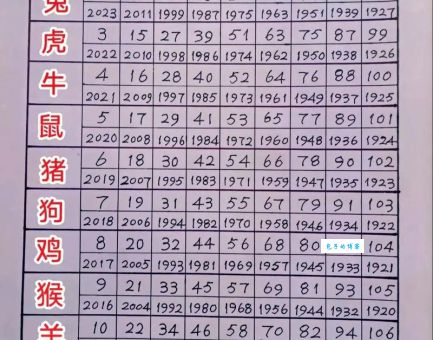 兔
2023 2011 1999 1987 1975 1963 1951 1939 1927
虎
3 15 27 39 51 63 75 87 99
2022 2010 1998 1986 1974 1962 1950 1938 1926
牛
4 16 28 40 52 64 76 88 100
2021 2009 1997 1985 1973 1961 1949 1937 1925
鼠
5 17 29 41 53 65 77 89 101
2020 2008 1996 1984 1972 1960 1948 1936 1924
猪
6 18 30 42 54 66 78 90 102
2019 2007 1995 1983 1971 1959 1947 1935 1923
狗
7 19 31 43 55 67 79 91 103
2018 2006 1994 1982 1970 1958 1946 1934 1922
鸡
8 20 32 44 56 68 80 104
2017 2005 1993 1981 1969 1957 1945 1933 1921
猴
9 21 33 45 57 69 81 93 105
2016 2004 1992 1980 1968 1956 1944 1932 1920
羊
10 22 34 46 58 70 82 94 106